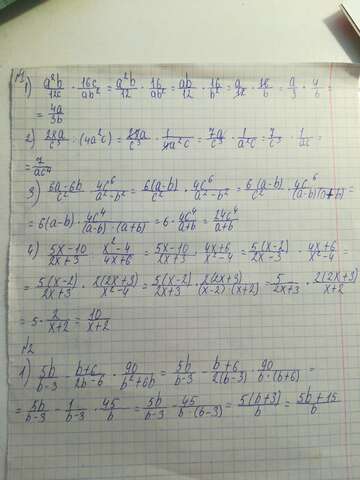 №1
1) a²b/12c · 16c/ab² = a²b/12 · 16/ab² = ab/12 · 16/b² = a/12 · 16/b = a/3 · 4/b =
= 4a/3b
2) 28a/c³ : (4a²c) = 28a/c³ · 1/4a²c = 7a/c³ · 1/a²c = 7/c³ · 1/ac =
= 7/ac⁴
3) 6a-6b/c² · 4c⁶/a²-b² = 6(a-b)/c² · 4c⁶/a²-b² = 6(a-b)/c² · 4c⁶/(a-b)(a+b) =
= 6(a-b) · 4c⁴/(a-b)·(a+b) = 6 · 4c⁴/a+b = 24c⁴/a+b
4) 5x-10/2x+3 : x²-4/4x+6 = 5x-10/2x+3 · 4x+6/x²-4 = 5(x-2)/2x-3 · 4x+6/x²-4 =
= 5(x-2)/2x+3 · 2(2x+3)/x²-4 = 5(x-2)/2x+3 · 2(2x+3)/(x-2)·(x+2) = 5/2x+3 · 2(2x+3)/x+2 =
= 5 · 2/x+2 = 10/x+2
№2
1) 5b/b-3 - b+6/2b-6 · 90/b²+6b = 5b/b-3 - b+6/2(b-3) · 90/b·(b+6) =
= 5b/b-3 - 1/b-3 · 45/b = 5b/b-3 - 45/b·(b-3) = 5(b+3)/b = 5b+15/b